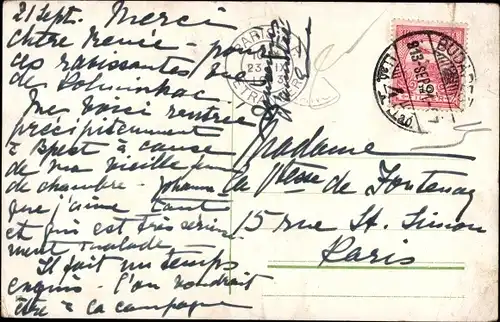 21 Sept. Merci
chère Renée - pour
ces ravissantes vue
de
Me voici rentrée
précipitamment
à Bpest à cause
de ma vieille femme
de chambre - Johanna
que j'aime tant
et qui est très sérieuse-
ment malade -
Il fait un temps
exquis - l'on voudrait
être à la campagne
PARIS
23
ETRANGER
BUDAPEST
Madame
la Ctesse de Fontenay
15 rue St. Simon
Paris